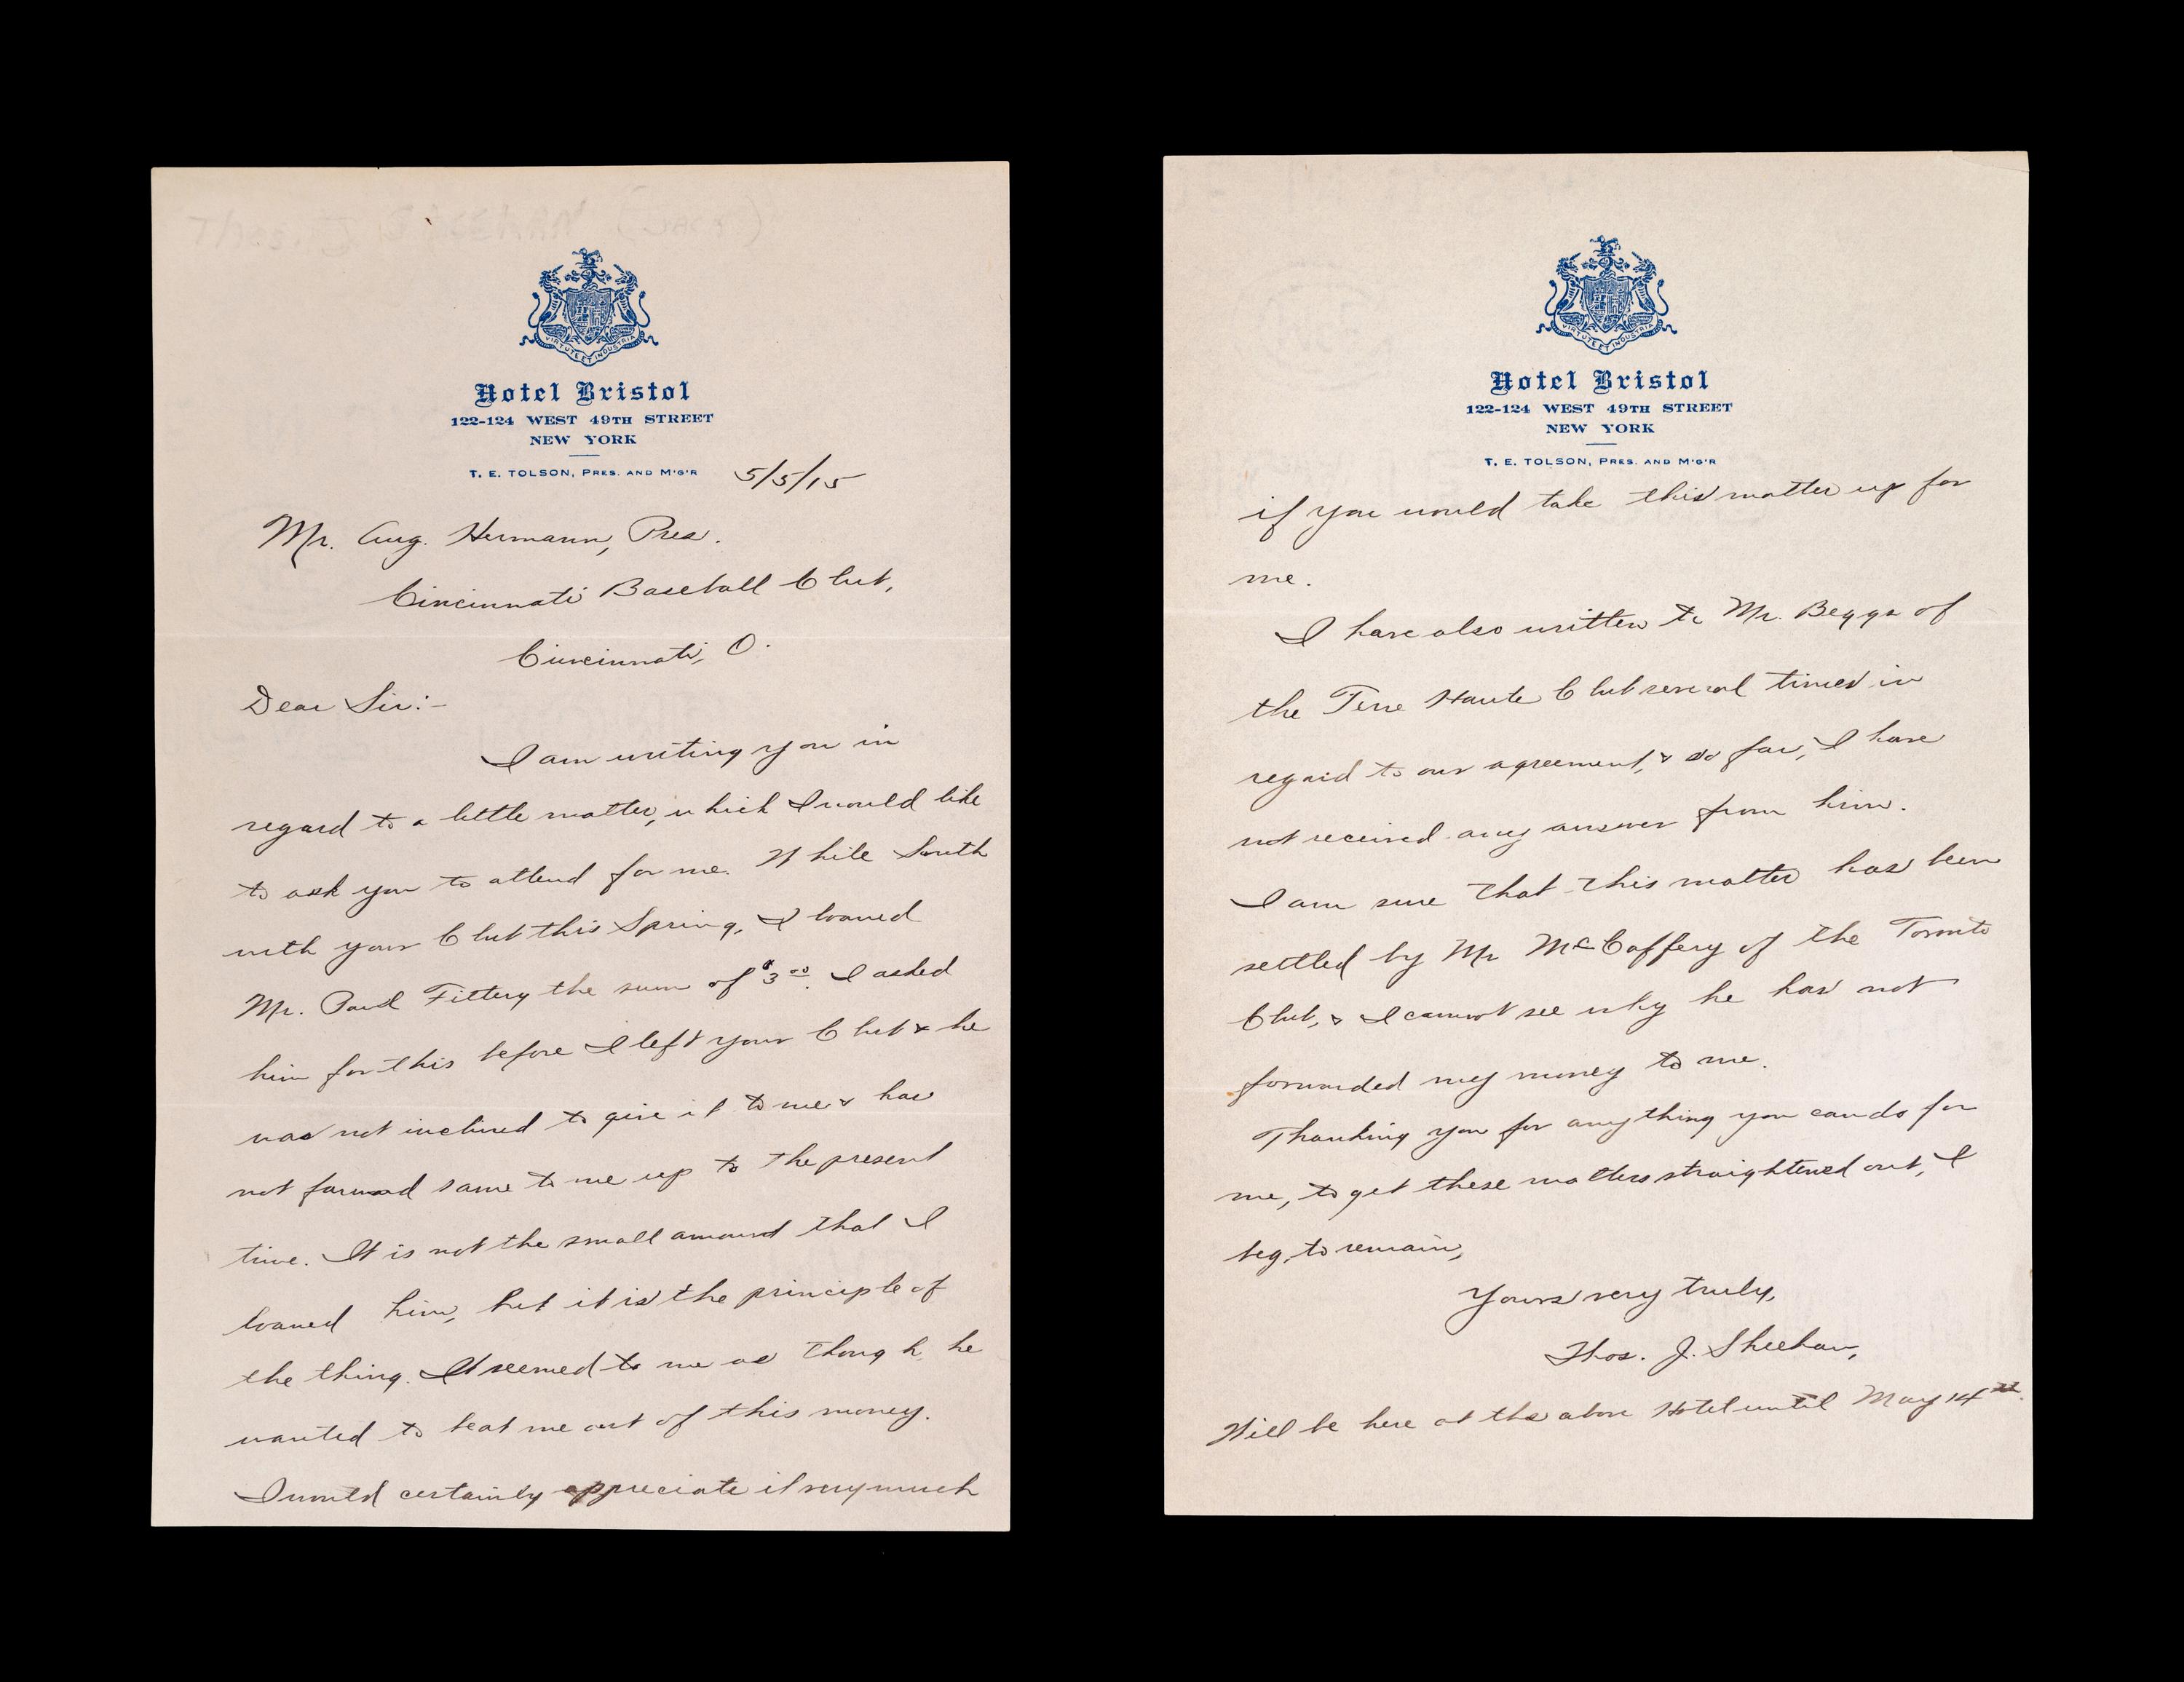 Thos. J. SHEEHAN (JACK)
VIRTUTE ET INDUSTRIA
Hotel Bristol
122-124 WEST 49TH STREET
NEW YORK
T. E. TOLSON, PRES. AND M'G'R
5/5/15
Mr. Aug. Hermann, Pres.
Cincinnati Baseball Club,
Cincinnati, O.
Dear Sir:-
I am writing you in
regard to a little matter, which I would like
to ask you to attend for me. While South
with your Club this Spring, I loaned
Mr. Paul Fittery the sum of $3.00. I asked
him for this before I left your Club & he
was not inclined to give it to me & has
not forward same to me up to the present
time. It is not the small amount that I
loaned him, but it is the principle of
the thing. It seemed to me as though he
wanted to beat me out of this money.
I would certainly appreciate it very much
VIRTUTE ET INDUSTRIA
Hotel Bristol
122-124 WEST 49TH STREET
NEW YORK
T. E. TOLSON, PRES. AND M'G'R
if you would take this matter up for
me.
I have also written to Mr. Beggs of
the Terre Haute Club several times in
regard to our agreement, & so far, I have
not received any answer from him.
I am sure that this matter has been
settled by Mr McCaffery of the Toronto
Club, & I cannot see why he has not
forwarded my money to me.
Thanking you for anything you can do for
me, to get these matters straightened out, I
beg to remain,
Yours very truly,
Thos. J. Sheehan,
Will be here at the above Hotel until May 14th.